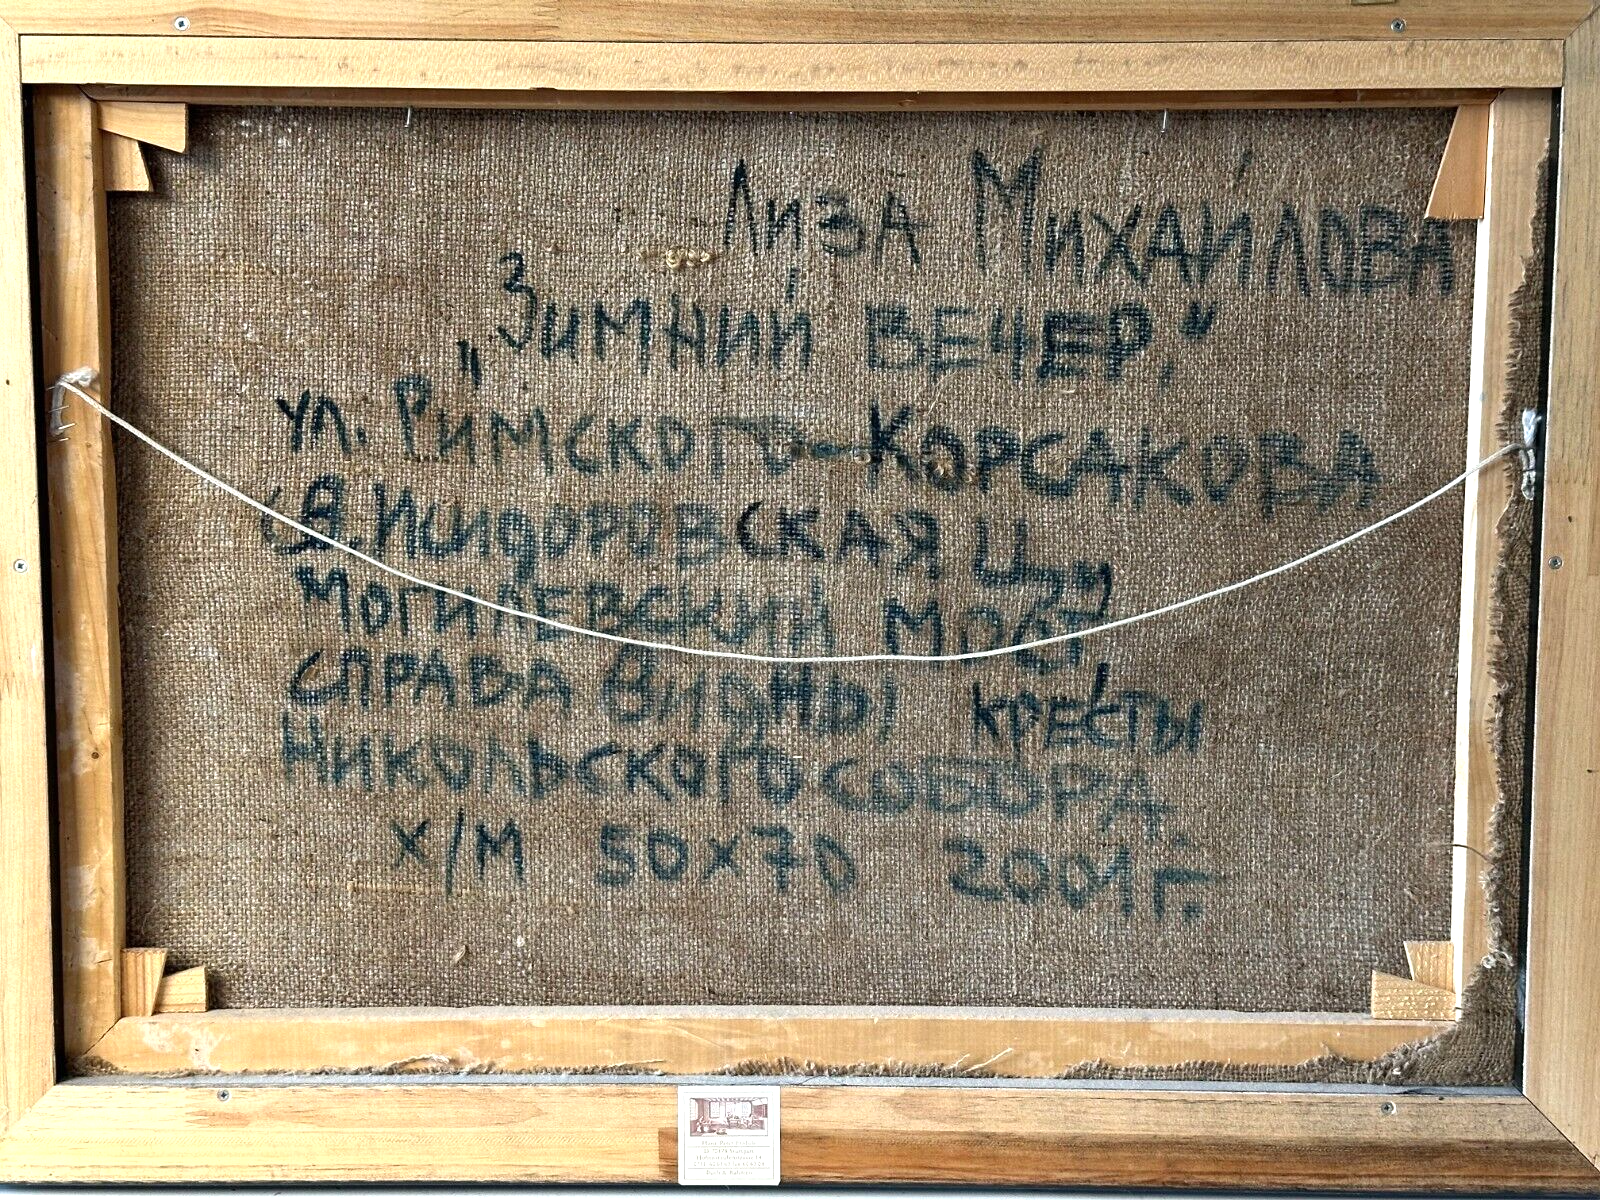 Лиза Михайлова
„Зимний вечер."
ул. Римского-Корсакова
Св. Исидоровская ц.,
Могилевский мост,
справа видны кресты
Никольского собора.
х/м 50х70 2001г.